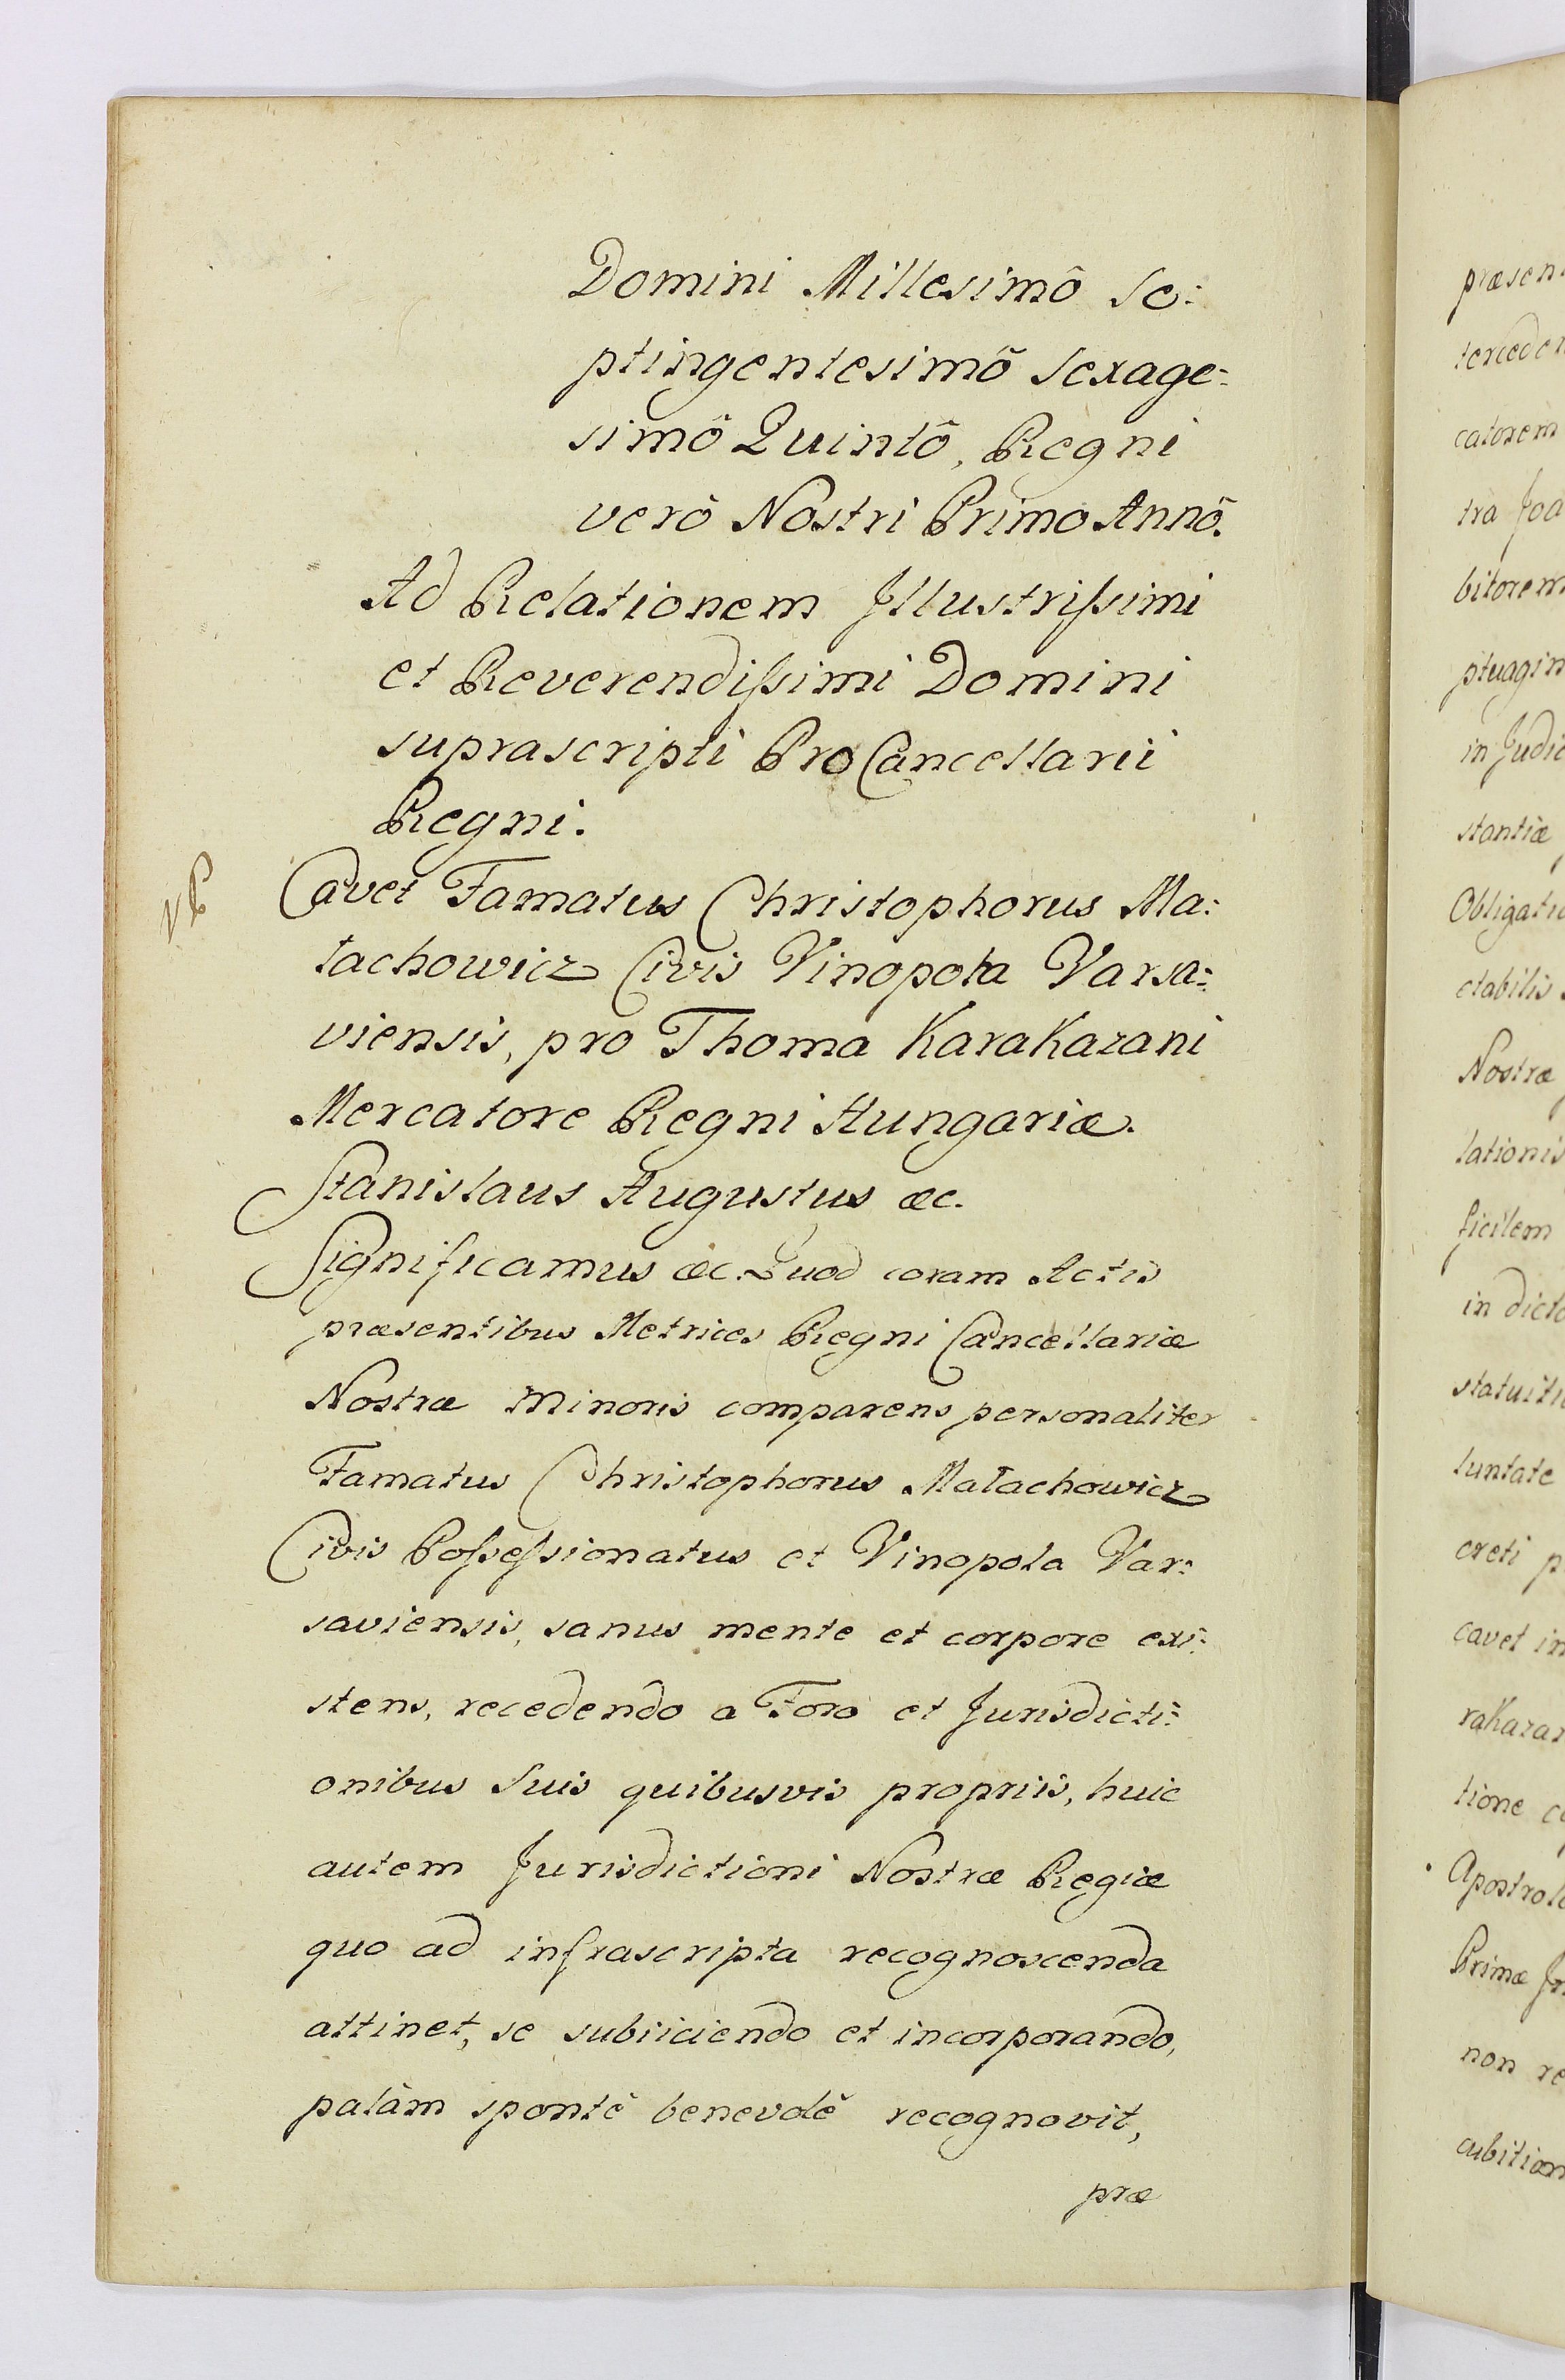 Domini Millesimô Se:
ptingentesimô Sexage:
simô Quintô, Regni
verô Nostri Primo Annô.
Ad Relationem Illustrissimi
et Reverendissimi Domini
suprascripti ProCancellarii
Regni.
Cavet Famatus Christophorus Ma:
łachowicz Civis Vinopola Varsa:
viensis, pro Thoma Karakazani
Mercatore Regni Hungariæ.
Stanislaus Augustus &c.
Significamus &c. Quod coram Actis
præsentibus Metrices Regni Cancellariæ
Nostræ Minoris comparens personaliter
Famatus Christophorus Małachowicz
Civis Possessionatus et Vinopola Var:
saviensis, sanus mente et corpore exi:
stens, recedendo a Foro et Jurisdicti:
onibus Suis quibusvis propriis, huic
autem Jurisdictioni Nostræ Regiæ
quo ad infrascripta recognoscenda
attinet, se subiiciendo et incorporando,
palàm spontè benevolè recognovit,
præ
præsen
catorem
tra Joa
bitorem
ptuagin
in Judic
stantiæ
Obligatio
ctabilis
Nostræ
lationis
ficilem
in dicto
statuiti
luntate
creti p
cavet in
rakazan
tione c
Apostrol
Primæ In
non re
cubition